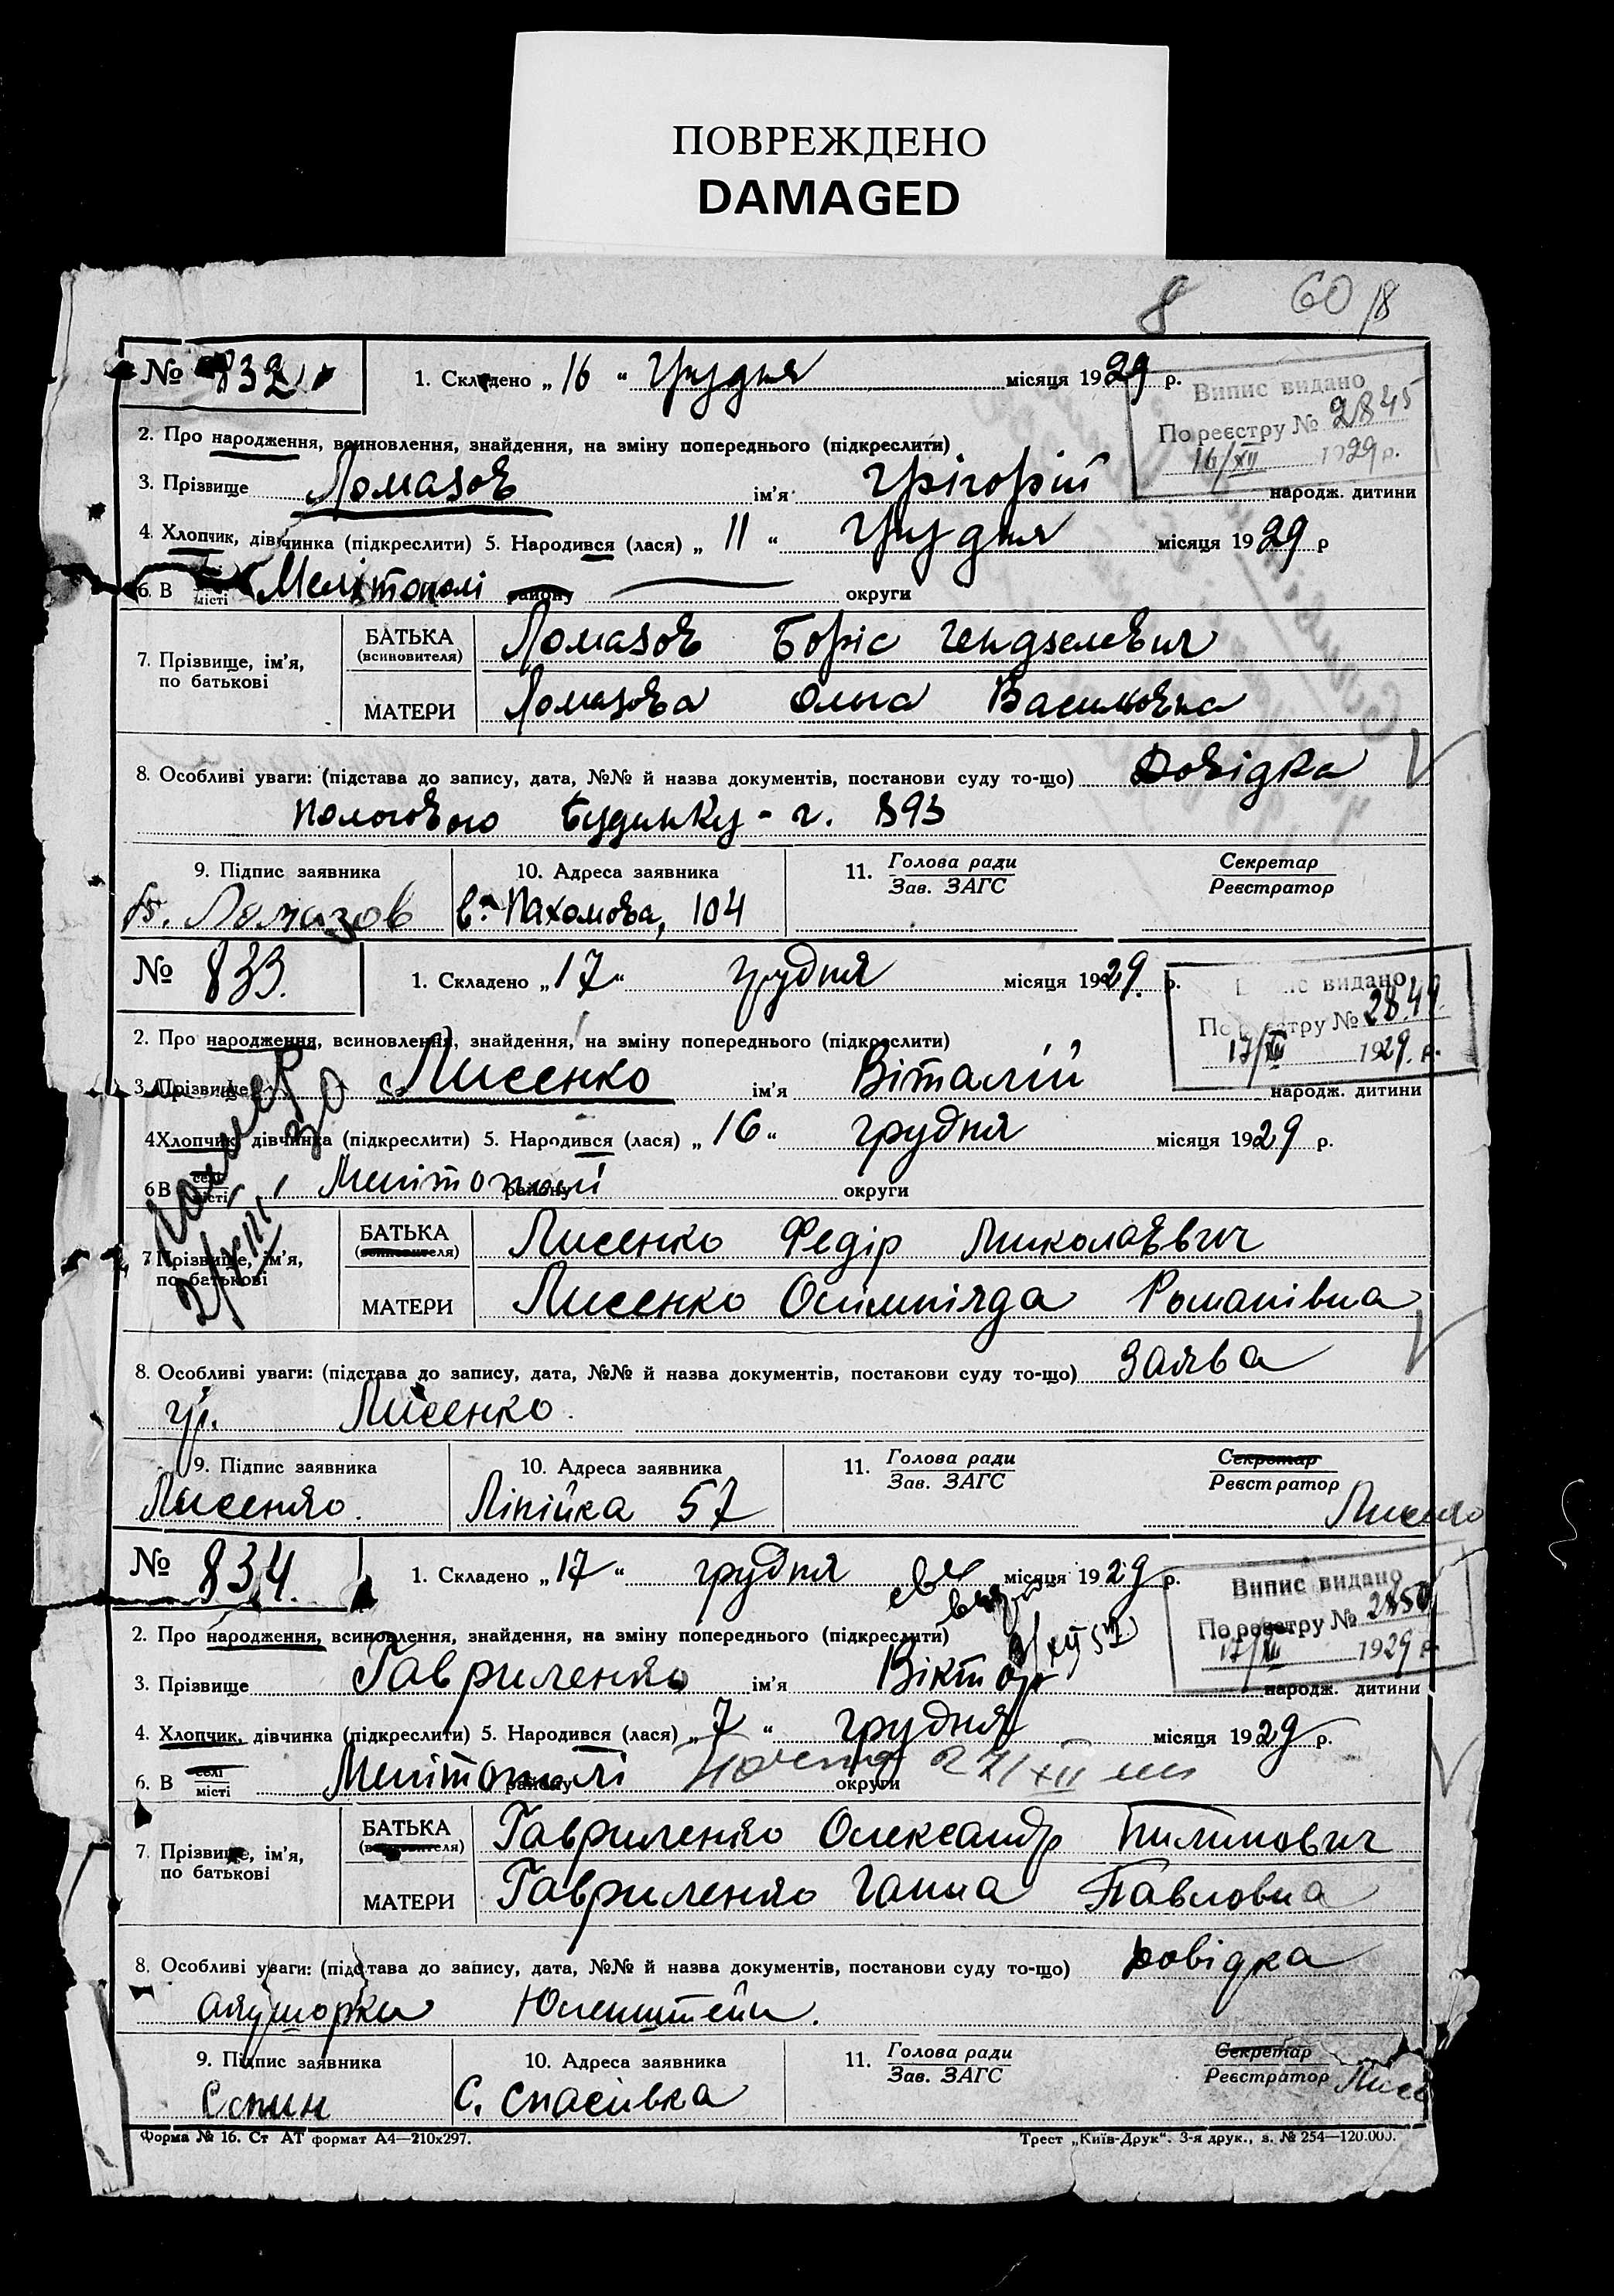 ПОВРЕЖДЕНО
DAMAGED
8 60 /8
№ 832 1. Складено „ 16 “ Грудня місяця 1929 р.
Випис видано
По реєстру № 2845
16/XII 1929 р.
2. Про народження, всиновлення, знайдення, на зміну попереднього (підкреслити)
3. Прізвище Ломазов ім’я Грігорій народж. дитини
4. Хлопчик, дівчинка (підкреслити) 5. Народився (лася) „ 11 “ Грудня місяця 1929 р
6. В місті Мелітополі району округи
7. Прізвище, ім’я, по батькові
БАТЬКА (всиновителя) Ломазов Боріс Гендзелевич
МАТЕРИ Ломазова Ольга Василювна
8. Особливі уваги: (підстава до запису, дата, №№ й назва документів, постанови суду то-що) Довідка
пологового будинку - г. 893
9. Підпис заявника 10. Адреса заявника 11. Голова ради Зав. ЗАГС Секретар Реєстратор
Б. Ломазов в. Пахомова, 104
№ 833. 1. Складено „ 17 “ грудня місяця 1929. р.
Випис видано
По реєстру № 2849.
17/XII 1929. р.
2. Про народження, всиновлення, знайдення, на зміну попереднього (підкреслити)
3. Прізвище Лисенко ім’я Віталій народж. дитини
4 Хлопчик, дівчинка (підкреслити) 5. Народився (лася) „ 16 “ грудня місяця 1929 р.
6 В селі місті Мелітополі району округи
7 Прізвище, ім’я, по батькові
БАТЬКА (всиновителя) Лисенко Федір Миколаєвич
МАТЕРИ Лисенко Олімпіяда Романівна
8. Особливі уваги: (підстава до запису, дата, №№ й назва документів, постанови суду то-що) Заява
гр. Лисенко.
9. Підпис заявника 10. Адреса заявника 11. Голова ради Зав. ЗАГС Секретар Реєстратор
Лисенко. Лінійка 57
№ 834. 1. Складено „ 17 “ грудня місяця 1929 р.
Випис видано
По реєстру № 2850
17/XII 1929 р.
2. Про народження, всиновлення, знайдення, на зміну попереднього (підкреслити)
3. Прізвище Гавриленко ім’я Віктор народж. дитини
4. Хлопчик, дівчинка (підкреслити) 5. Народився (лася) „ 7 “ грудня місяця 1929 р.
6. В селі місті Мелітополі району округи
7. Прізвище, ім’я, по батькові
БАТЬКА (всиновителя) Гавриленко Олександр Пилипович
МАТЕРИ Гавриленко Ганна Павловна
8. Особливі уваги: (підстава до запису, дата, №№ й назва документів, постанови суду то-що) Довідка
акушорки Юленштейн.
9. Підпис заявника 10. Адреса заявника 11. Голова ради Зав. ЗАГС Секретар Реєстратор
С. Спасівка
Форма № 16. Ст АТ формат А4—210х297. Трест „Київ-Друк“. 3-я друк., з. № 254—120.000.